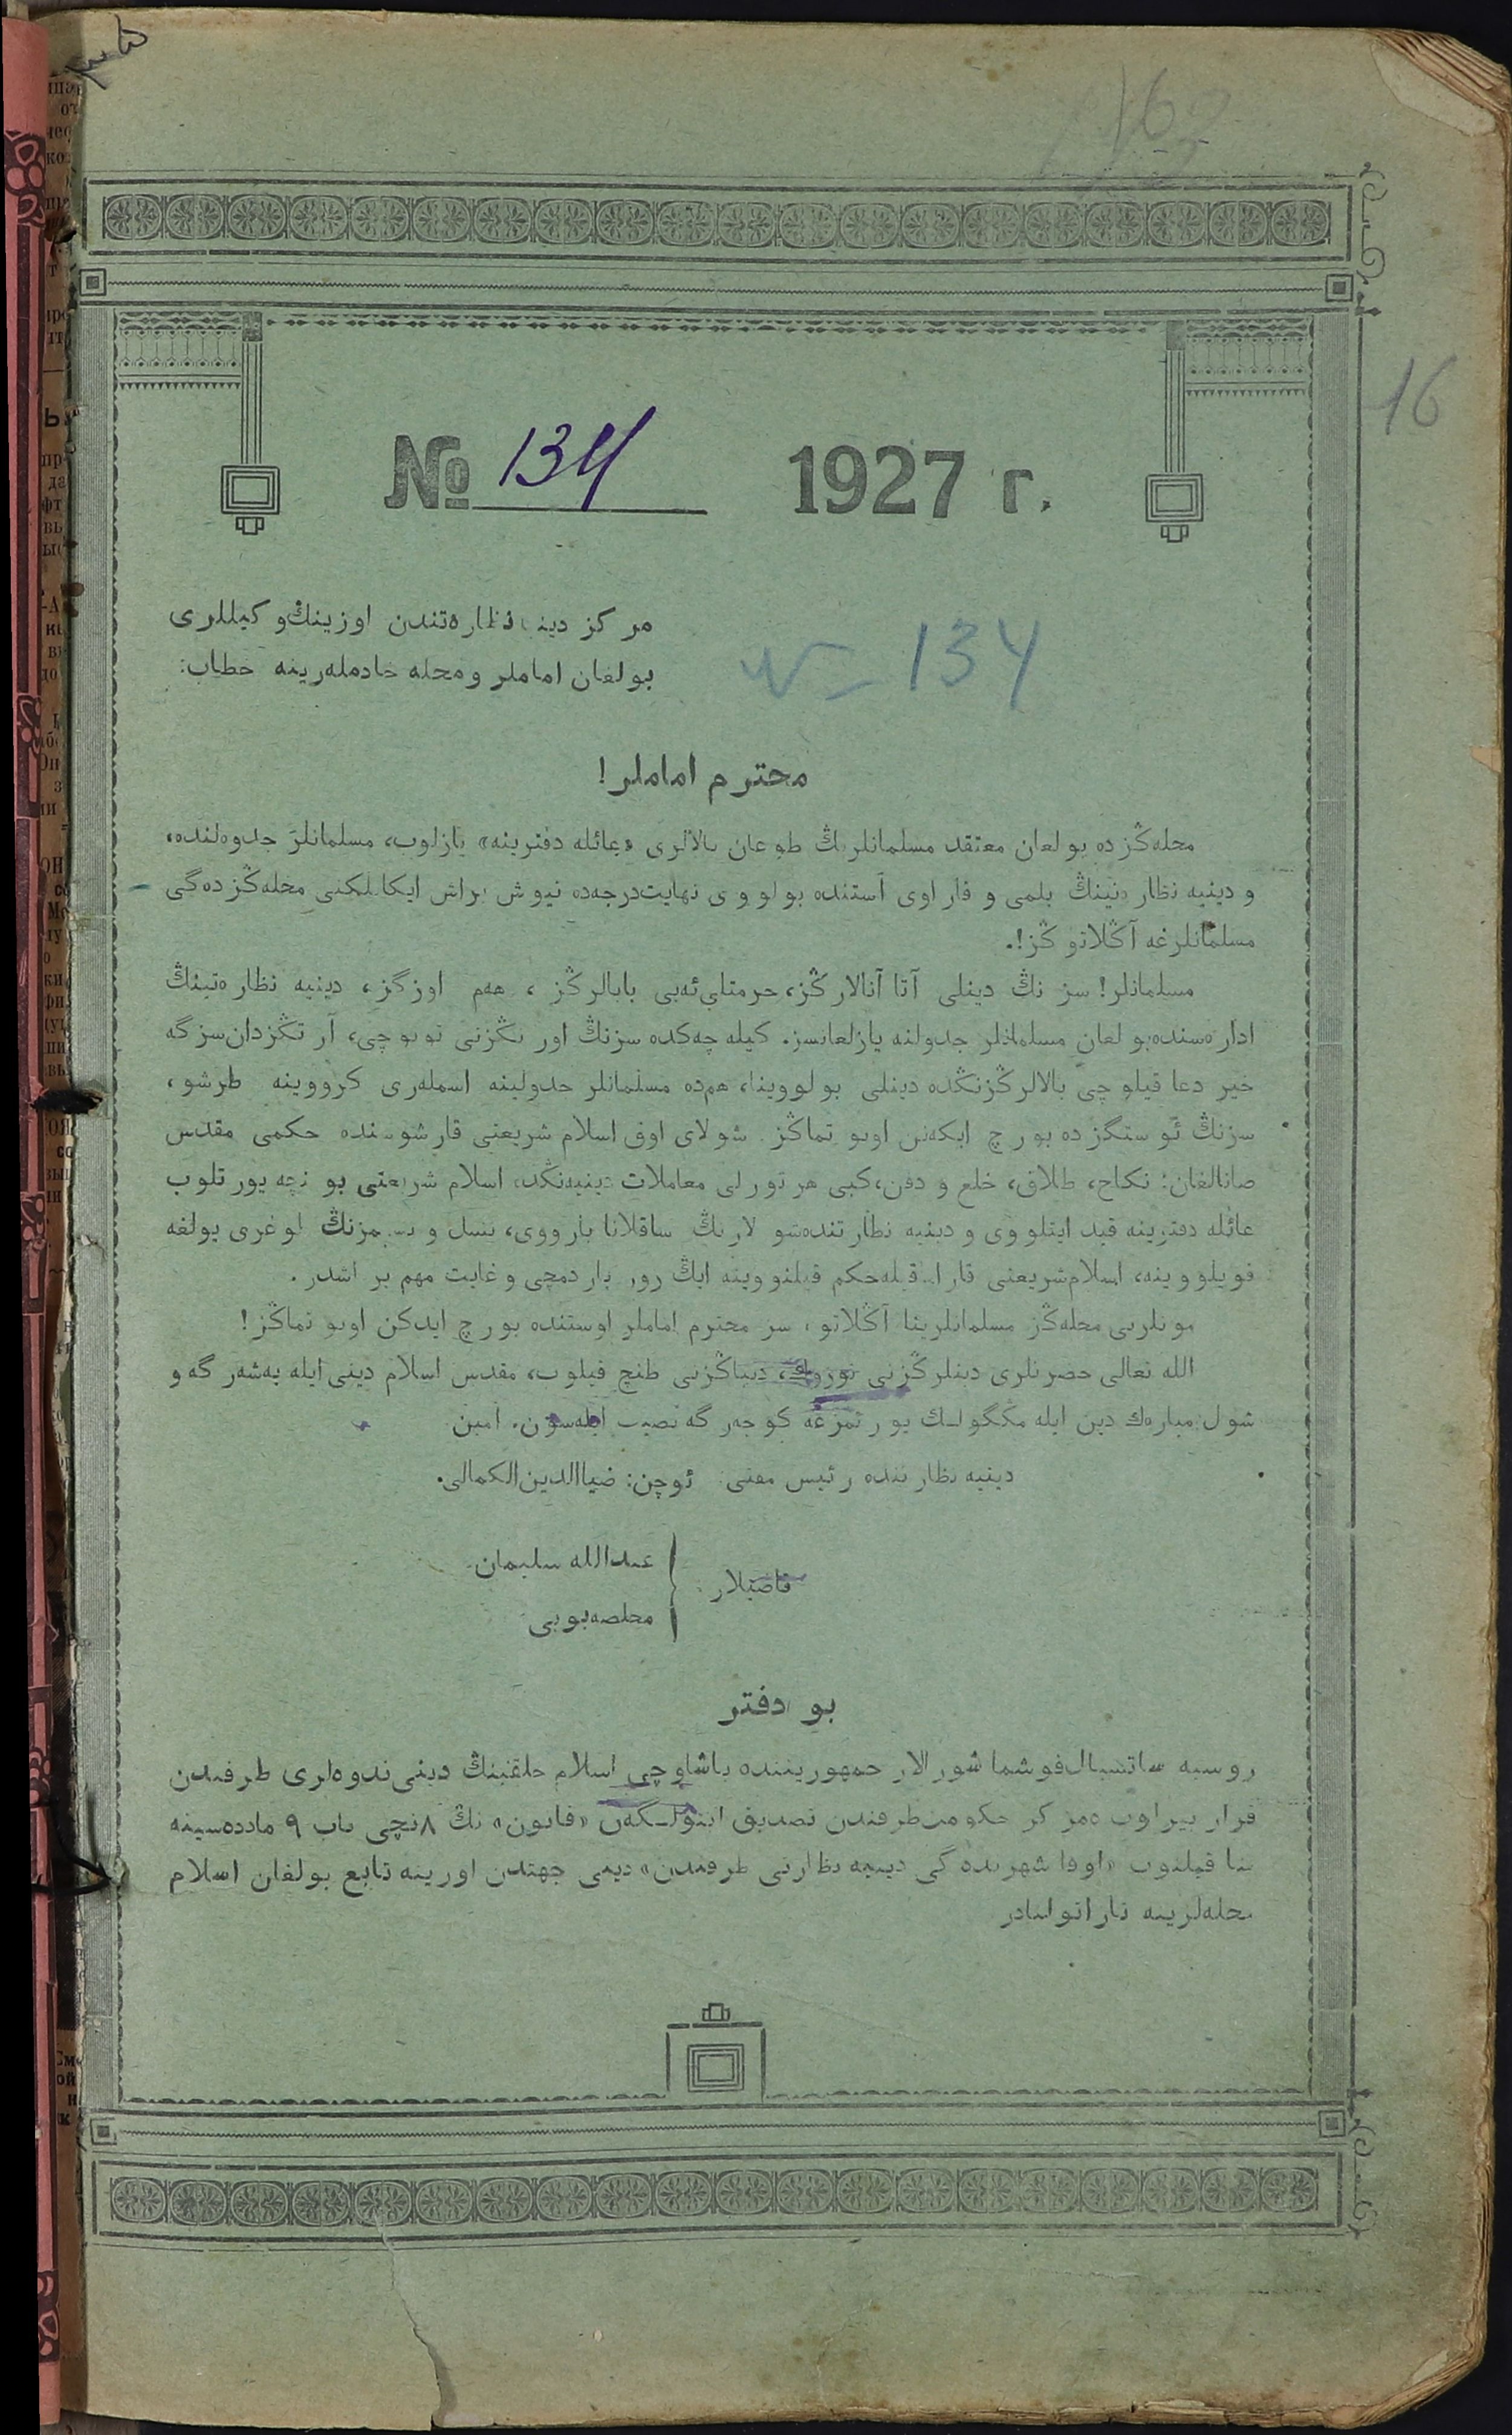 163
16
№ 134 1927 г.
مركز دينيه نظارەتندن اوزينڭ وكيللرى
بولغان اماملر و محله خادملەرينە خطاب:
№ 134
محترم اماملر!
محلەڭزدە بولغان معتقد مسلمانلرنڭ طوغان بالالرى «عائله دفترينه» يازلوب، مسلمانلر جدوەلندە،
و دينيه نظارەتينڭ بلمى و قاراوى آستندە بولووى نهايت درجەدە تيوش براش ايكانلكنى محلەڭزدەگى
مسلمانلرغە آڭلاتوڭز!.
مسلمانلر! سزنڭ دينلى آتا آنالارڭز، حرمتلى ئەبى بابالرڭز، هەم اوزڭز، دينيه نظارەتينڭ
ادارەسندە بولغان مسلمانلر جدولنە يازلغانسز. كيلەچەكدە سزنڭ اورنڭزنى توتوچى، آرتڭزدان سزگە
خير دعا قيلوچى بالالرڭزنڭدە دينلى بولووينا، هەمدە مسلمانلر جدولينە اسملەرى كرووينە طرشو،
سزنڭ ئوستڭزدە بورچ ايكەنن اونوتماڭز. شولاى اوق اسلام شريعتى قارشوسندە حكمى مقدس
صانالغان: نكاح، طلاق، خلع و دفن، كبى هر تورلى معاملات دينيەنڭدە، اسلام شريعتى بوينچە يورتلوب
عائله دفترينە قيد ايتلووى و دينيه نظارتندە شولارنڭ ساقلانا بارووى، نسل و نسبمزنڭ طوغرى يولغە
قويلووينە، اسلام شريعتى قاراشنچە حكم قيلنووينە ايڭ زور ياردمچى و غايت مهم بر اشدر.
مونلرنى محلەڭز مسلمانلرينا آڭلاتو، سز محترم اماملر اوستندە بورچ ايدكن اونوتماڭز!
الله تعالى حضرتلرى دينلرڭزنى نورلى، دنياڭزنى طنچ قيلوب، مقدس اسلام دينى ايله يەشەرگە و
شول مبارەك دين ايله مڭگولك يورتمزغە كوچەرگە نصيب ايلەسون. آمين
دينيه نظارتندە رئيس مفتى ئوچن: ضياالدين الكمالى.
قاضيلار: { عبدالله سليمان
مخلصە بوبى
بو دفتر
روسيه ساتسيال قوشما شورالار جمهوريتندە ياشاوچى اسلام خلقينڭ دينى ندوەلرى طرفندن
قرار بيرلوب مركز حكومت طرفندن تصديق ايتولگەن «قانون» نڭ ٨نچى باب ٩ ماددەسينە
بنا قيلنوب «اوفا شهرندەگى دينيه نظارتى طرفندن» دينى جهتدن اورينە تابع بولغان اسلام
محلەلرينە تاراتولادر